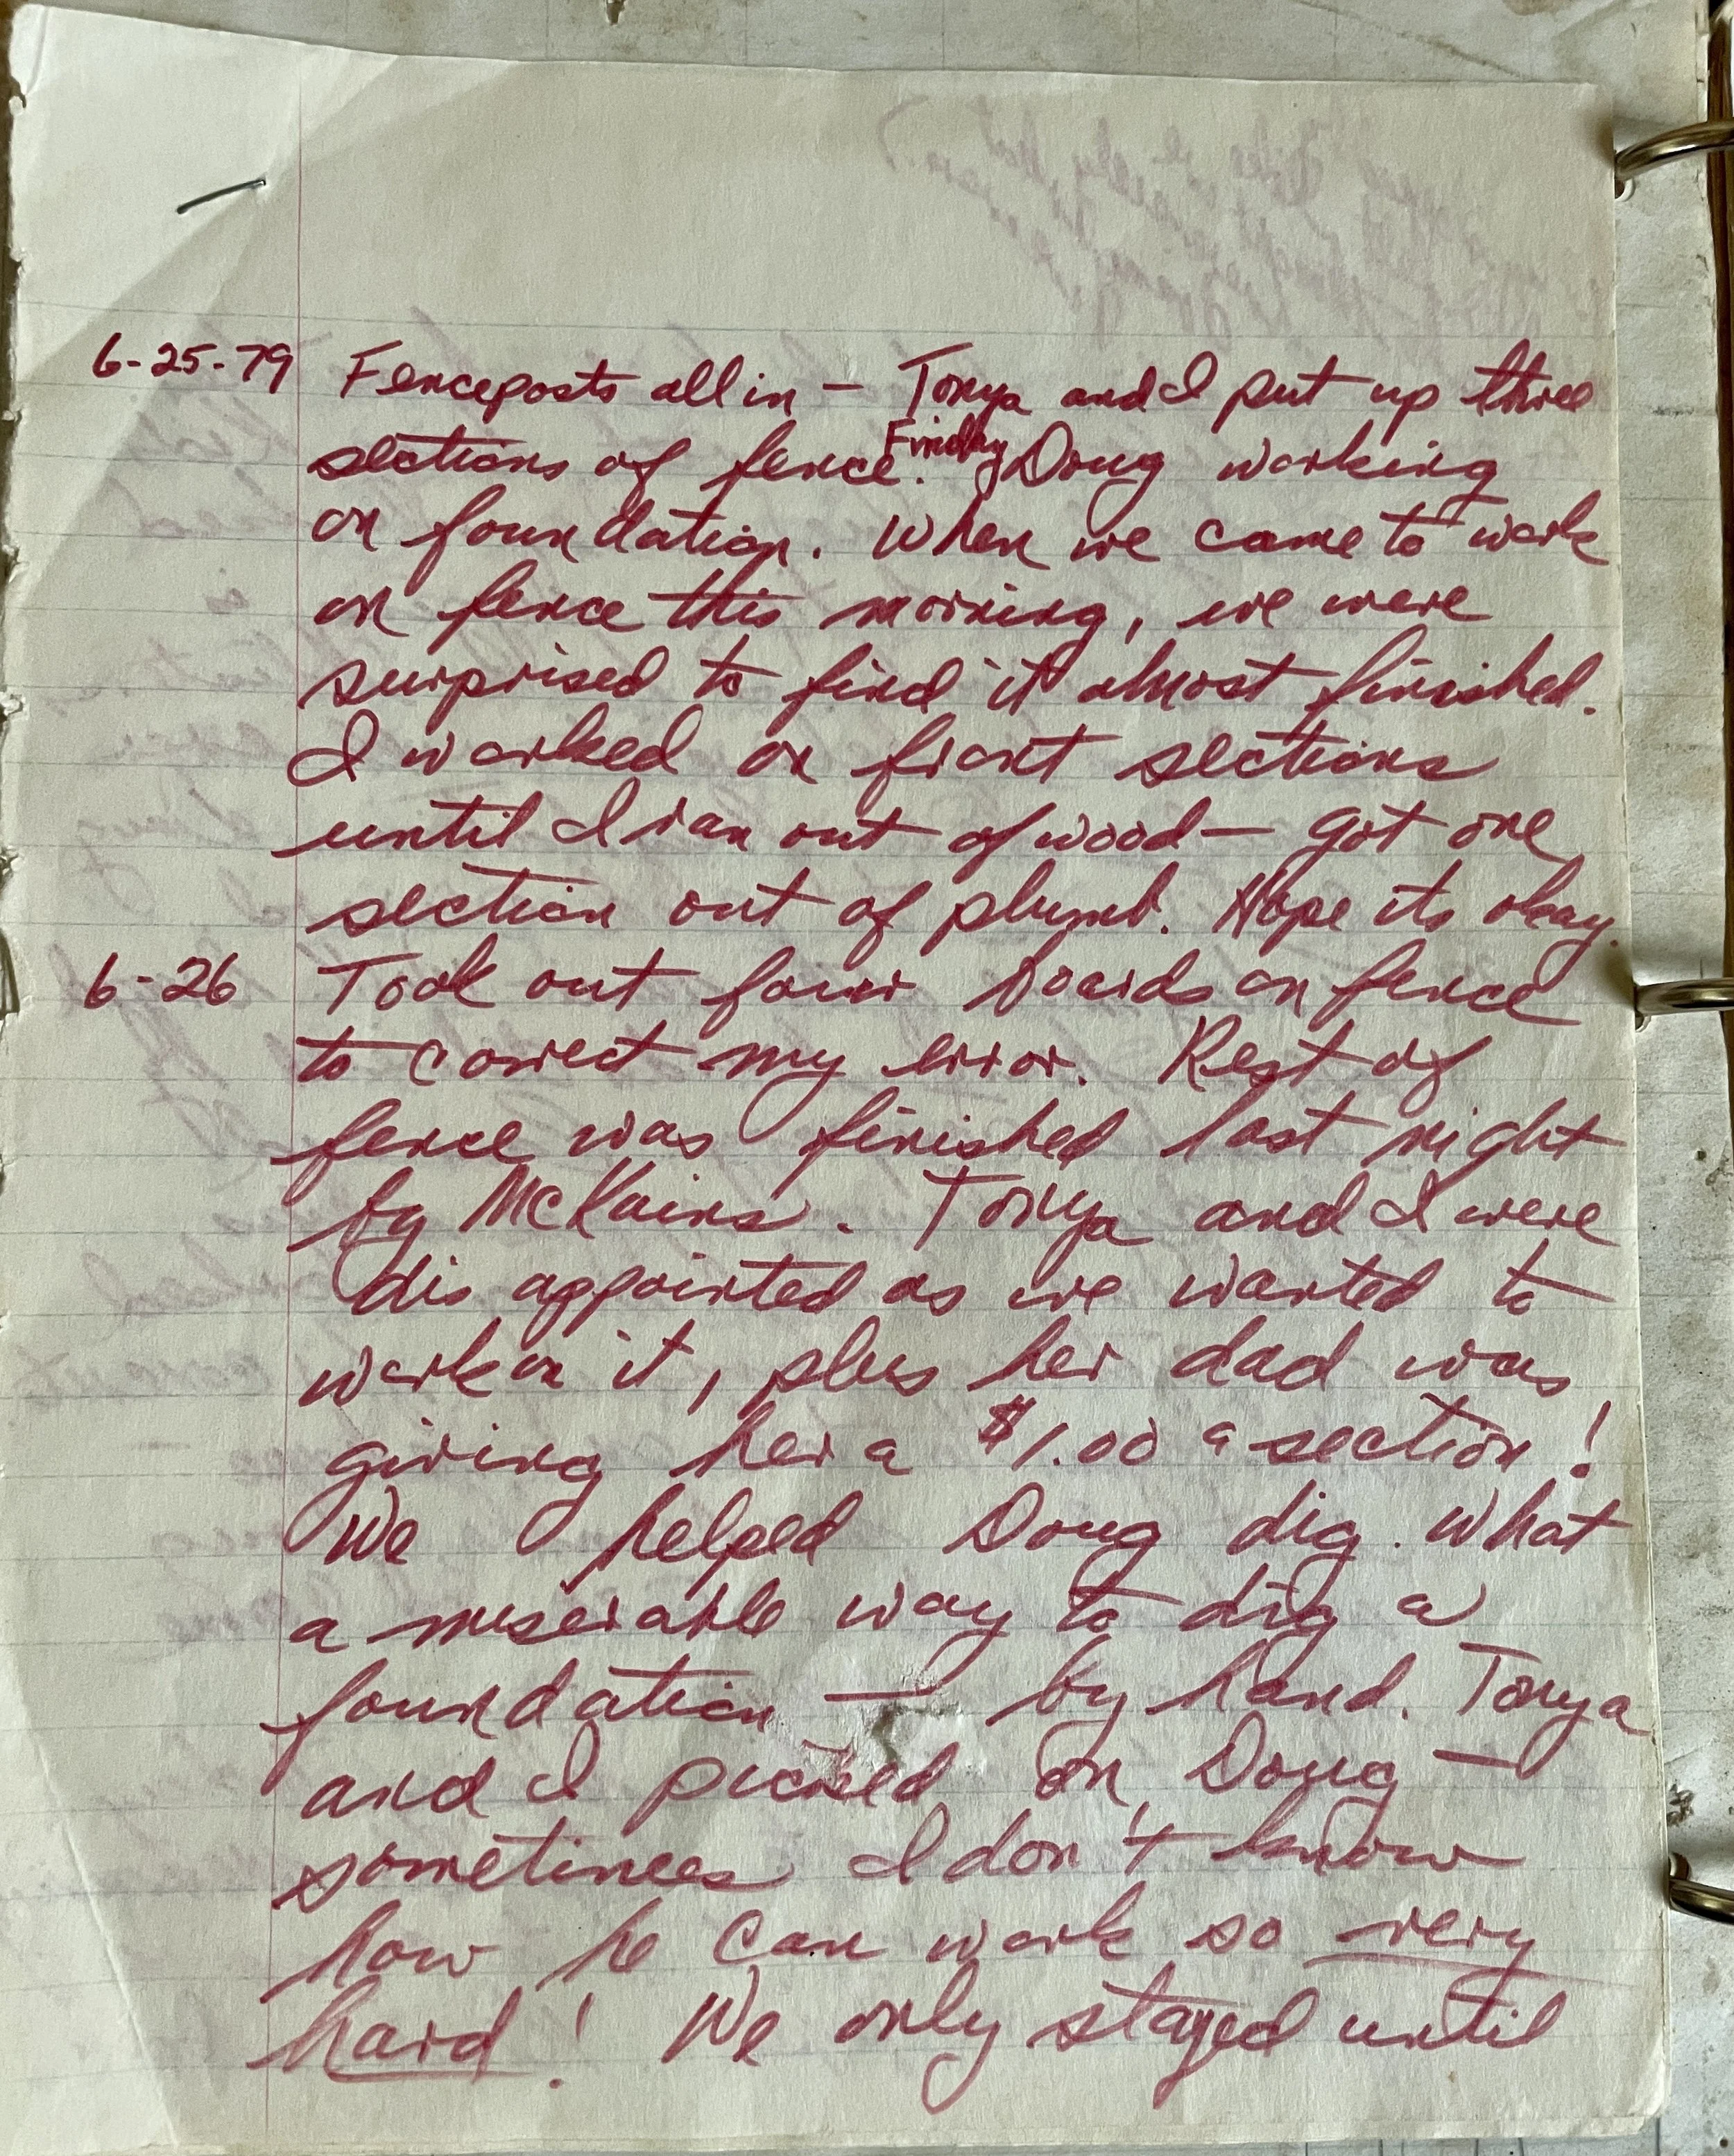 6-25-79 Fenceposts all in — Tonya and I put up three
sections of fence. Friday Doug working
on foundation. When we came to work
on fence this morning, we were
surprised to find it almost finished.
I worked on front sections
until I ran out of wood — got one
section out of plumb. Hope its okay.
6-26 Took out four boards on fence
to correct my error. Rest of
fence was finished last night
by McKains. Tonya and I were
dis appointed as we wanted to
work on it, plus her dad was
giving her a $1.00 a section!
We helped Doug dig. What
a miserable way to dig a
foundation — by hand. Tonya
and I picked on Doug —
sometimes I don't know
how he can work so very
hard! We only stayed until